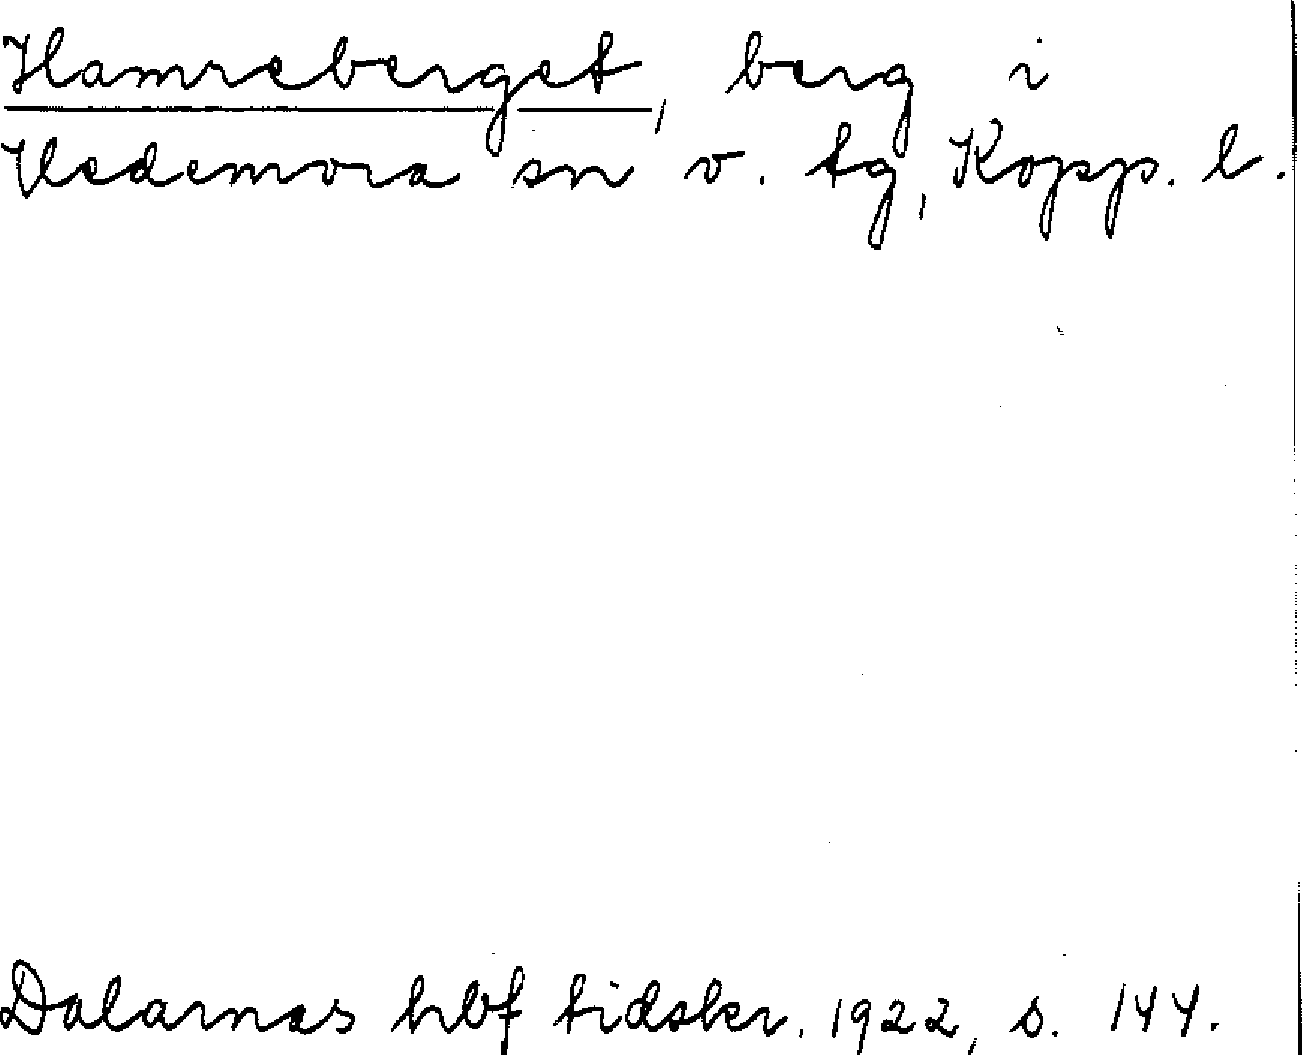 Hamreberget, berg i
Hedemora sn o. tg, Kopp. l.
Dalarnas hbf tidskr. 1922, s. 144.